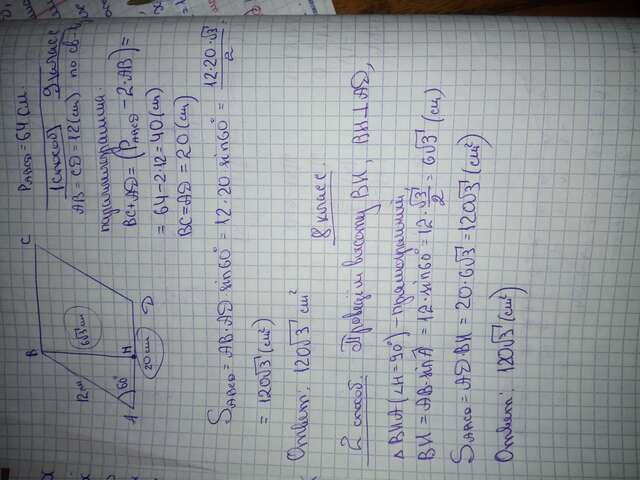 P_ABCD = 64 см.
1 способ) 9 класс
AB = CD = 12 (см) по св-
параллелограмма
BC + AD = (P_ABCD − 2·AB) =
= 64 − 2·12 = 40 (см)
BC = AD = 20 (см)
S_ABCD = AB·AD·sin60° = 12·20·sin60° = 12·20·√3/2 =
= 120√3 (см²)
Ответ: 120√3 см²
8 класс.
2 способ. Проведём высоту BH, BH⊥AD,
△BHA (∠H=90°) – прямоугольный
BH = AB·sinÂ = 12·sin60° = 12·√3/2 = 6√3 (см)
S_ABCD = AD·BH = 20·6√3 = 120√3 (см²)
Ответ: 120√3 (см²)
B
C
12 см
6√3 см
60°
A
H
D
20 см